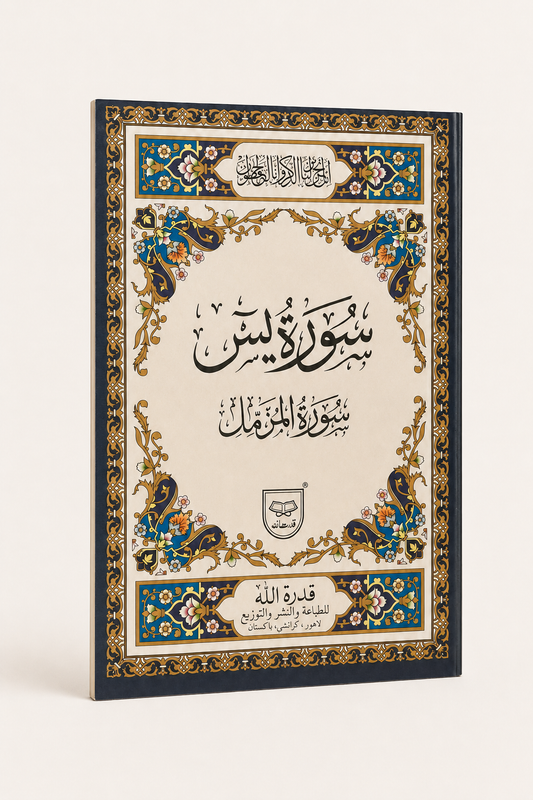 سُورَةُ يٰسٓ
سُورَةُ الْمُزَّمِّل
®
قدرت الله
قدرة الله
للطباعة والنشر والتوزيع
لاهور، كراتشي، باكستان